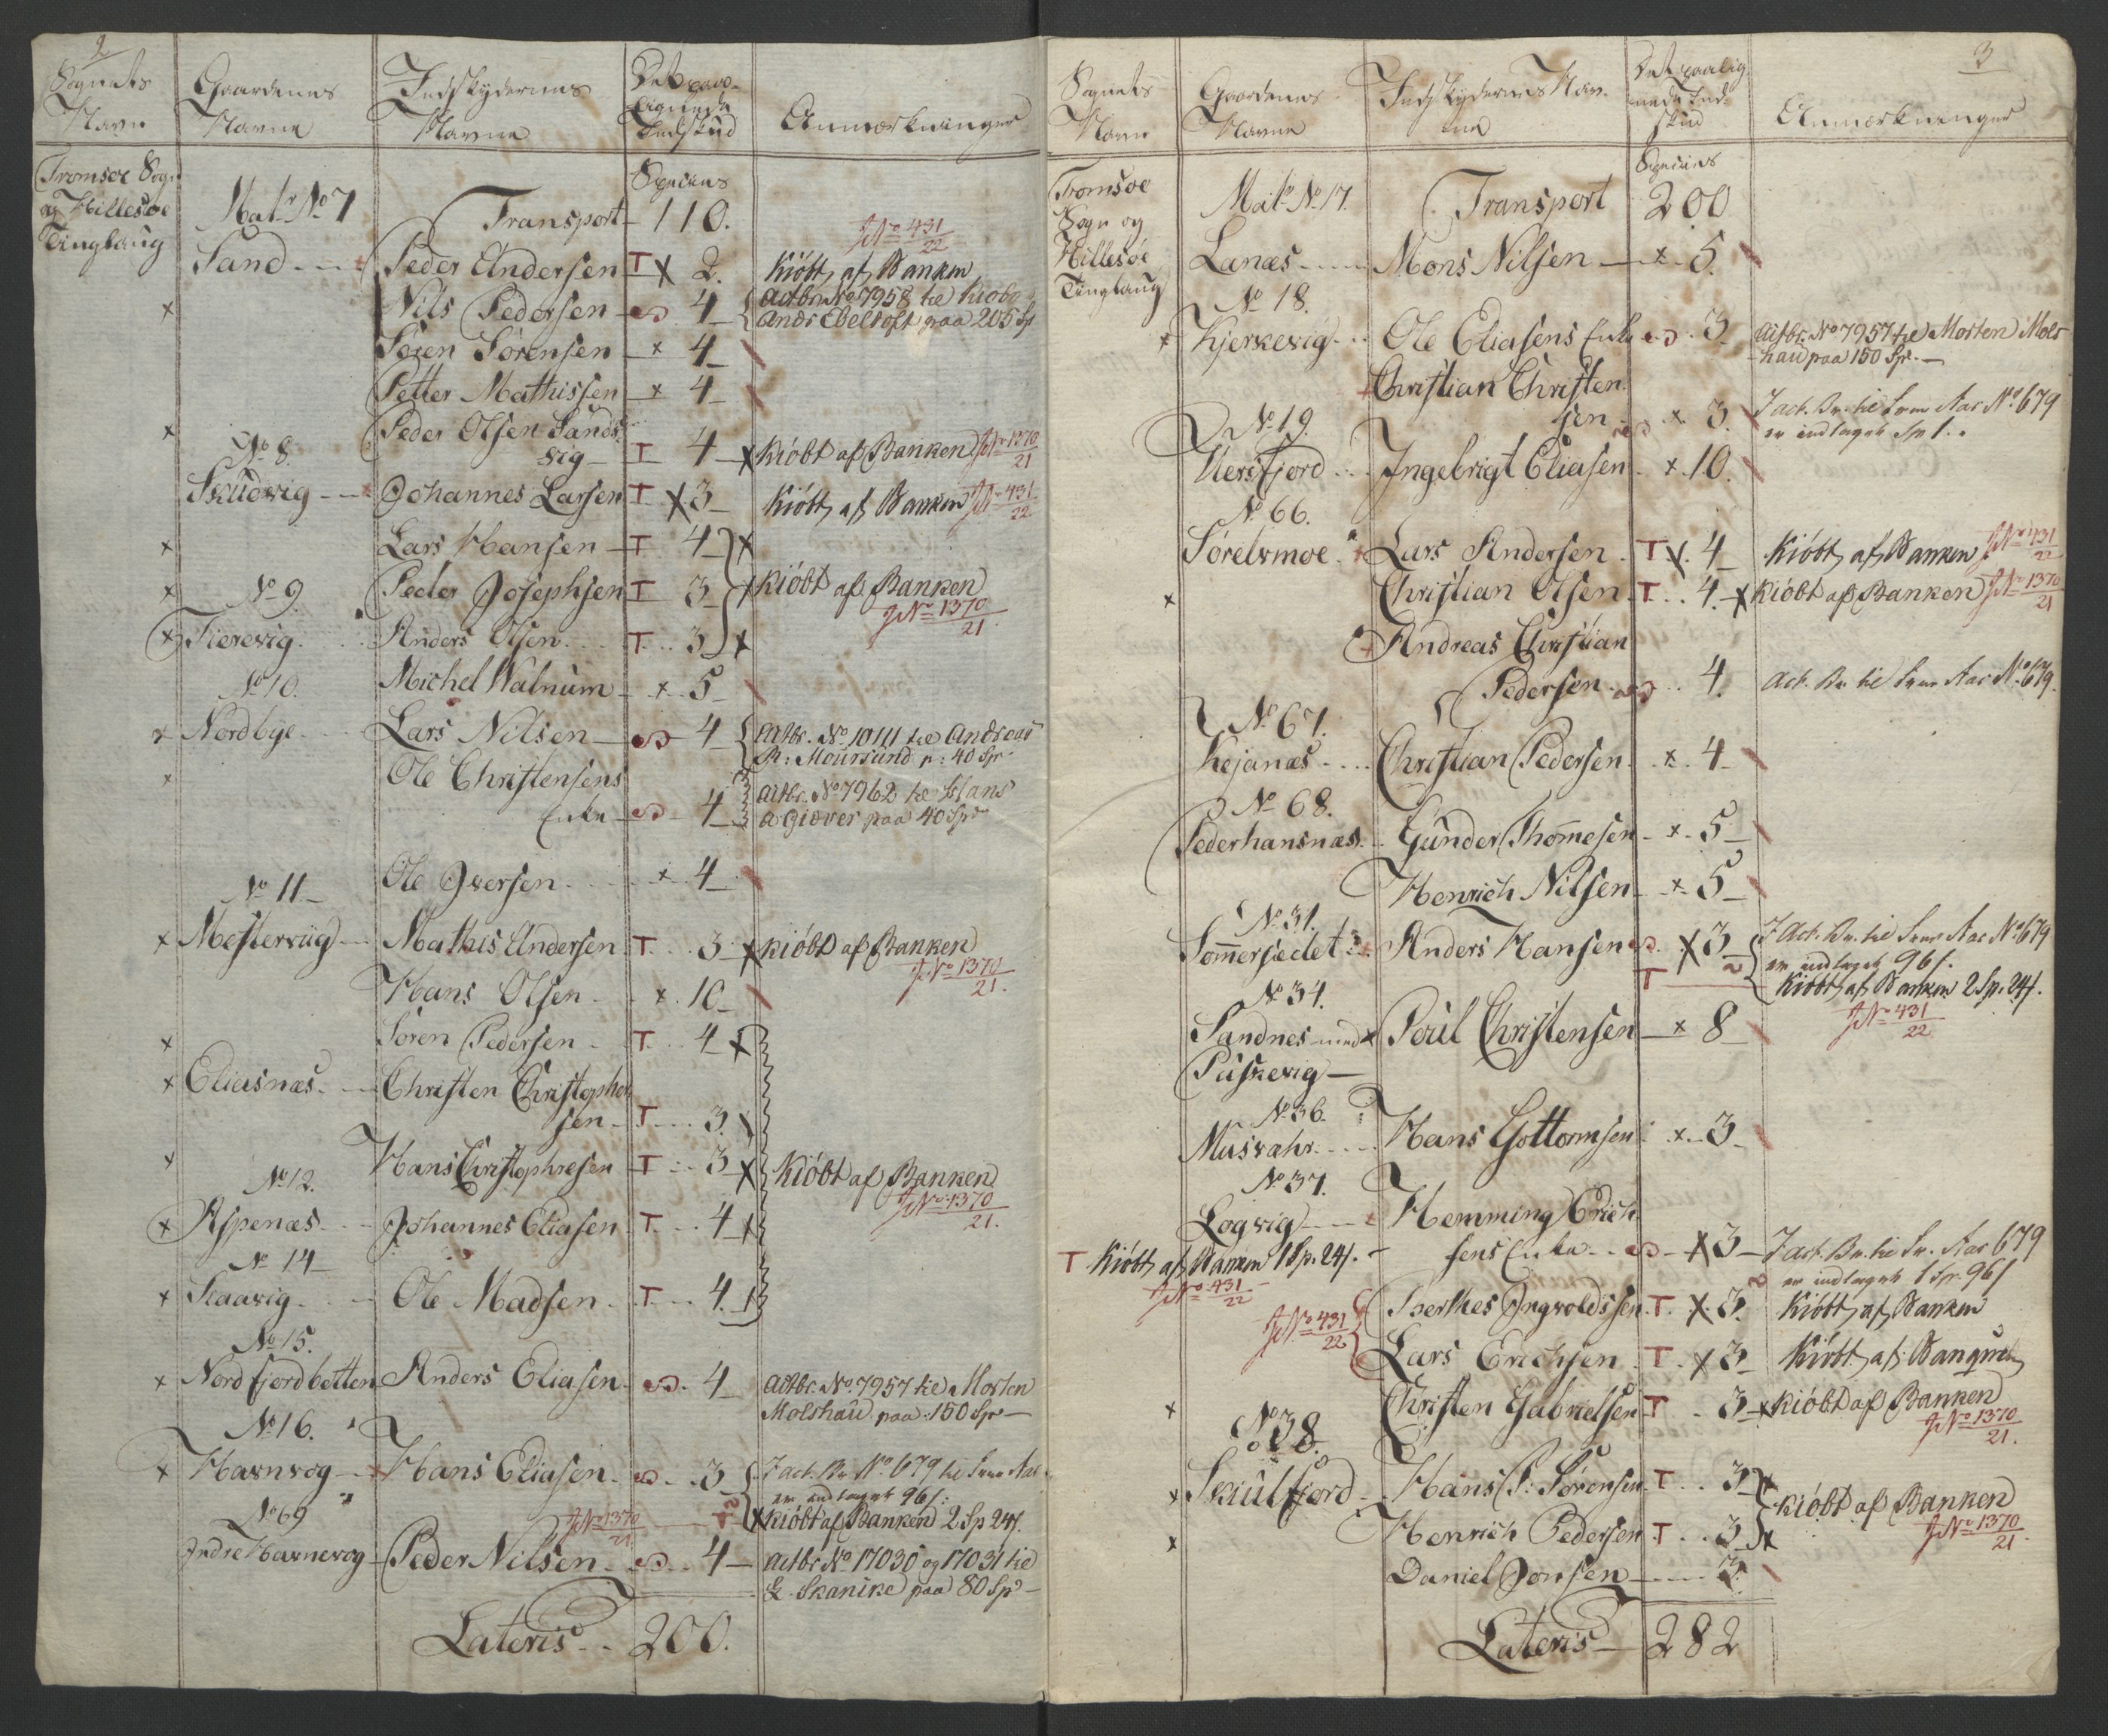 2
Sognets Navn | Gaardenes Navne | Indskydernes Navne | Det paalignede Indskud | Anmærkninger
Tromsøe Sogn og Hillesøe Tinglaug
Species
Mat: No 7 Transport 110.
JNo 431/22
Sand Peder Andersen T x 2. Kiöbt af Banken
x Nils Pedersen 4 Actbr No 7958 til Kiøbm
Andr Ebeltoft paa 205 Sp
Sören Sörensen x 4
Petter Mathissen x 4
x Peder Olsen Sands
vig T 4 x Kiöbt af Banken JNo 1370/21
No 8.
Skudvig Johannes Larsen T x 3 Kiöbt af Banken JNo 431/22
x Lars Hansen T 4 x
x Peder Josephsen T 3 x Kiöbt af Banken
JNo 1370/21.
No 9.
x Tierevig Anders Olsen T 3 x
Michel Walnum x 5
No 10.
x Nordbye Lars Nilsen 4 Actbr. No 10111 til Andreas
R: Moursund p: 40 Sp
x Ole Christensens
Enke 4 Actbr. No 7962 til Hans
A Giæver paa 40 Sp
Ole Iversen x 4
No 11
x Mestervüg Mathis Andersen T 3 x Kiöbt af Banken
JNo 1370/21.
Hans Olsen x 10
x Sören Pedersen T 4 x
x Eliasnæs Christen Christopher
sen T 3. x
x Hans Christophresen T 3 x Kiöbt af Banken
JNo 1370/21.
No 12.
x Aspenæs Johannes Eliasen T 4 x
No 14
x Skaavig Ole Madsen T 4. x
No 15.
x Nordfjordbotten Anders Eliasen 4 Actbr. No 7957 til Morten
Molshau paa 150 Sp
No 16.
x Havnvog Hans Eliasen 3 I act. Br No 679 til Aar
er indtaget 96 s.
JNo 1370/21 x Kiöbt af Banken 2 Sp 24 s.
No 69
Indre Havnevog Peder Nilsen 4 Actbr No 17030 og 17031 til
Skanike paa 80 Sp
Lateris 200.
3
Sognets Navn | Gaardenes Navne | Indskydernes Navne | Det paalignede Indskud | Anmærkninger
Tromsøe Sogn og Hillesøe Tinglaug
Species
Mat: No 17. Transport 200
Lanæs Mons Nilsen x 5.
No 18.
x Kjerkevig Ole Eliasens Enke 3 Actbr. No 7957 til Morten Mols
hau paa 150 Sp.
Christian Christen
sen x 3. I act. Br. til Aar No 679
er indtaget Sp 1.
No 19.
Uersfjord Ingebrigt Eliasen x 10.
No 66.
Sörelvmoe Lars Andersen T x 4 Kiöbt af Banken JNo 431/22
x Christian Olsen T 4. x Kiöbt af Banken JNo 1370/21
Andreas Christian
Pedersen 4. Act. Br. til Aar No 679.
No 67.
Kejanæs Christian Pedersen x 4
No 68.
Pederhansnæs Gunder Thomesen x 5
Henrich Nilsen x 5
No 31.
Somersædet Anders Hansen x 3 I Act. Br. til Aar No 679
er indtaget 96 s.
T Kiöbt af Banken 2 Sp. 24 s.
JNo 431/22
No 34.
Sandnes med Poul Christensen x 8
Puskevig
No 36.
Musvahr Hans Gottormsen x 3
No 37.
Logvig Hemming Erich
sens Enke x 3 I act. Br. til Aar 679
er indtaget 1 Sp. 96 s
T Kiöbt af Banken 1 Sp. 24 s.
JNo 431/22
JNo 431/22 Perthes Ingvoldssen T x 3. Kiöbt af Banken
Lars Erichsen T x 3 Kiöbt af Banquen
x Christen Gabrielsen T 3 x Kiöbt af Banken
JNo 1370/21.
No 38.
x Skiulfjord Hans P: Sörensen T 3 x
Kiöbt af Banken
x Henrich Pedersen T 3 x JNo 1370/21.
Daniel Jonsen 3.
Lateris 282